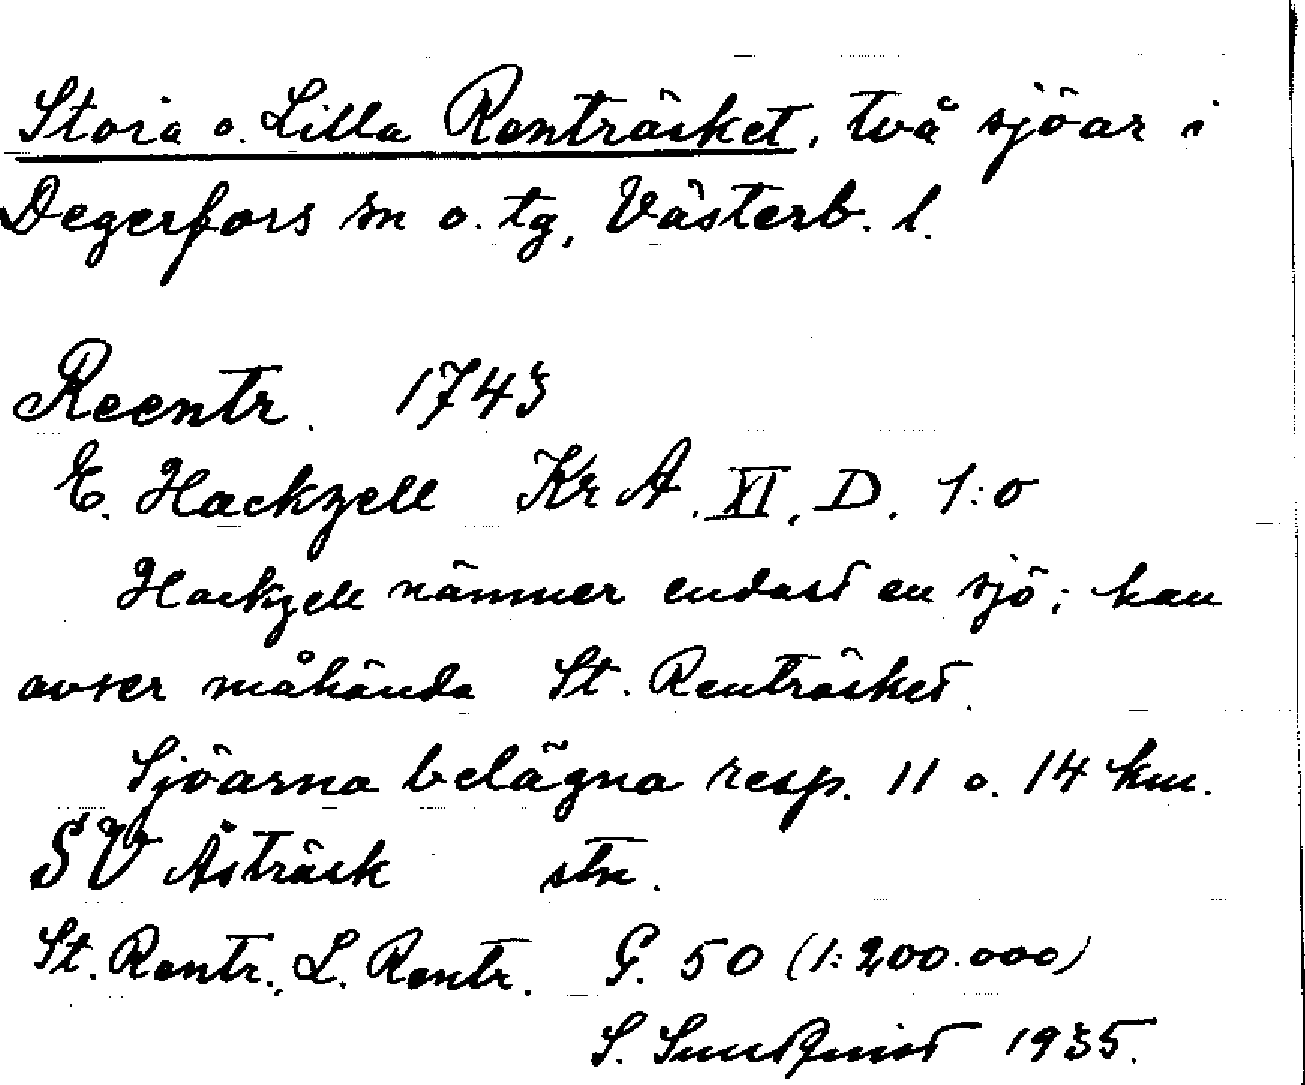 Stora o. Lilla Renträsket, två sjöar i
Degerfors sn o. tg, Västerb. l.
Reentr. 1743
E. Hackzell Kr A. XI. D. 1:0
Hackzell nämner endast en sjö; han
avser måhända St. Renträsket.
Sjöarna belägna resp. 11 o. 14 km.
SV Åsträsk stn.
St. Rentr., L. Rentr. G. 50 (1:200.000)
S. Sundquist 1935.